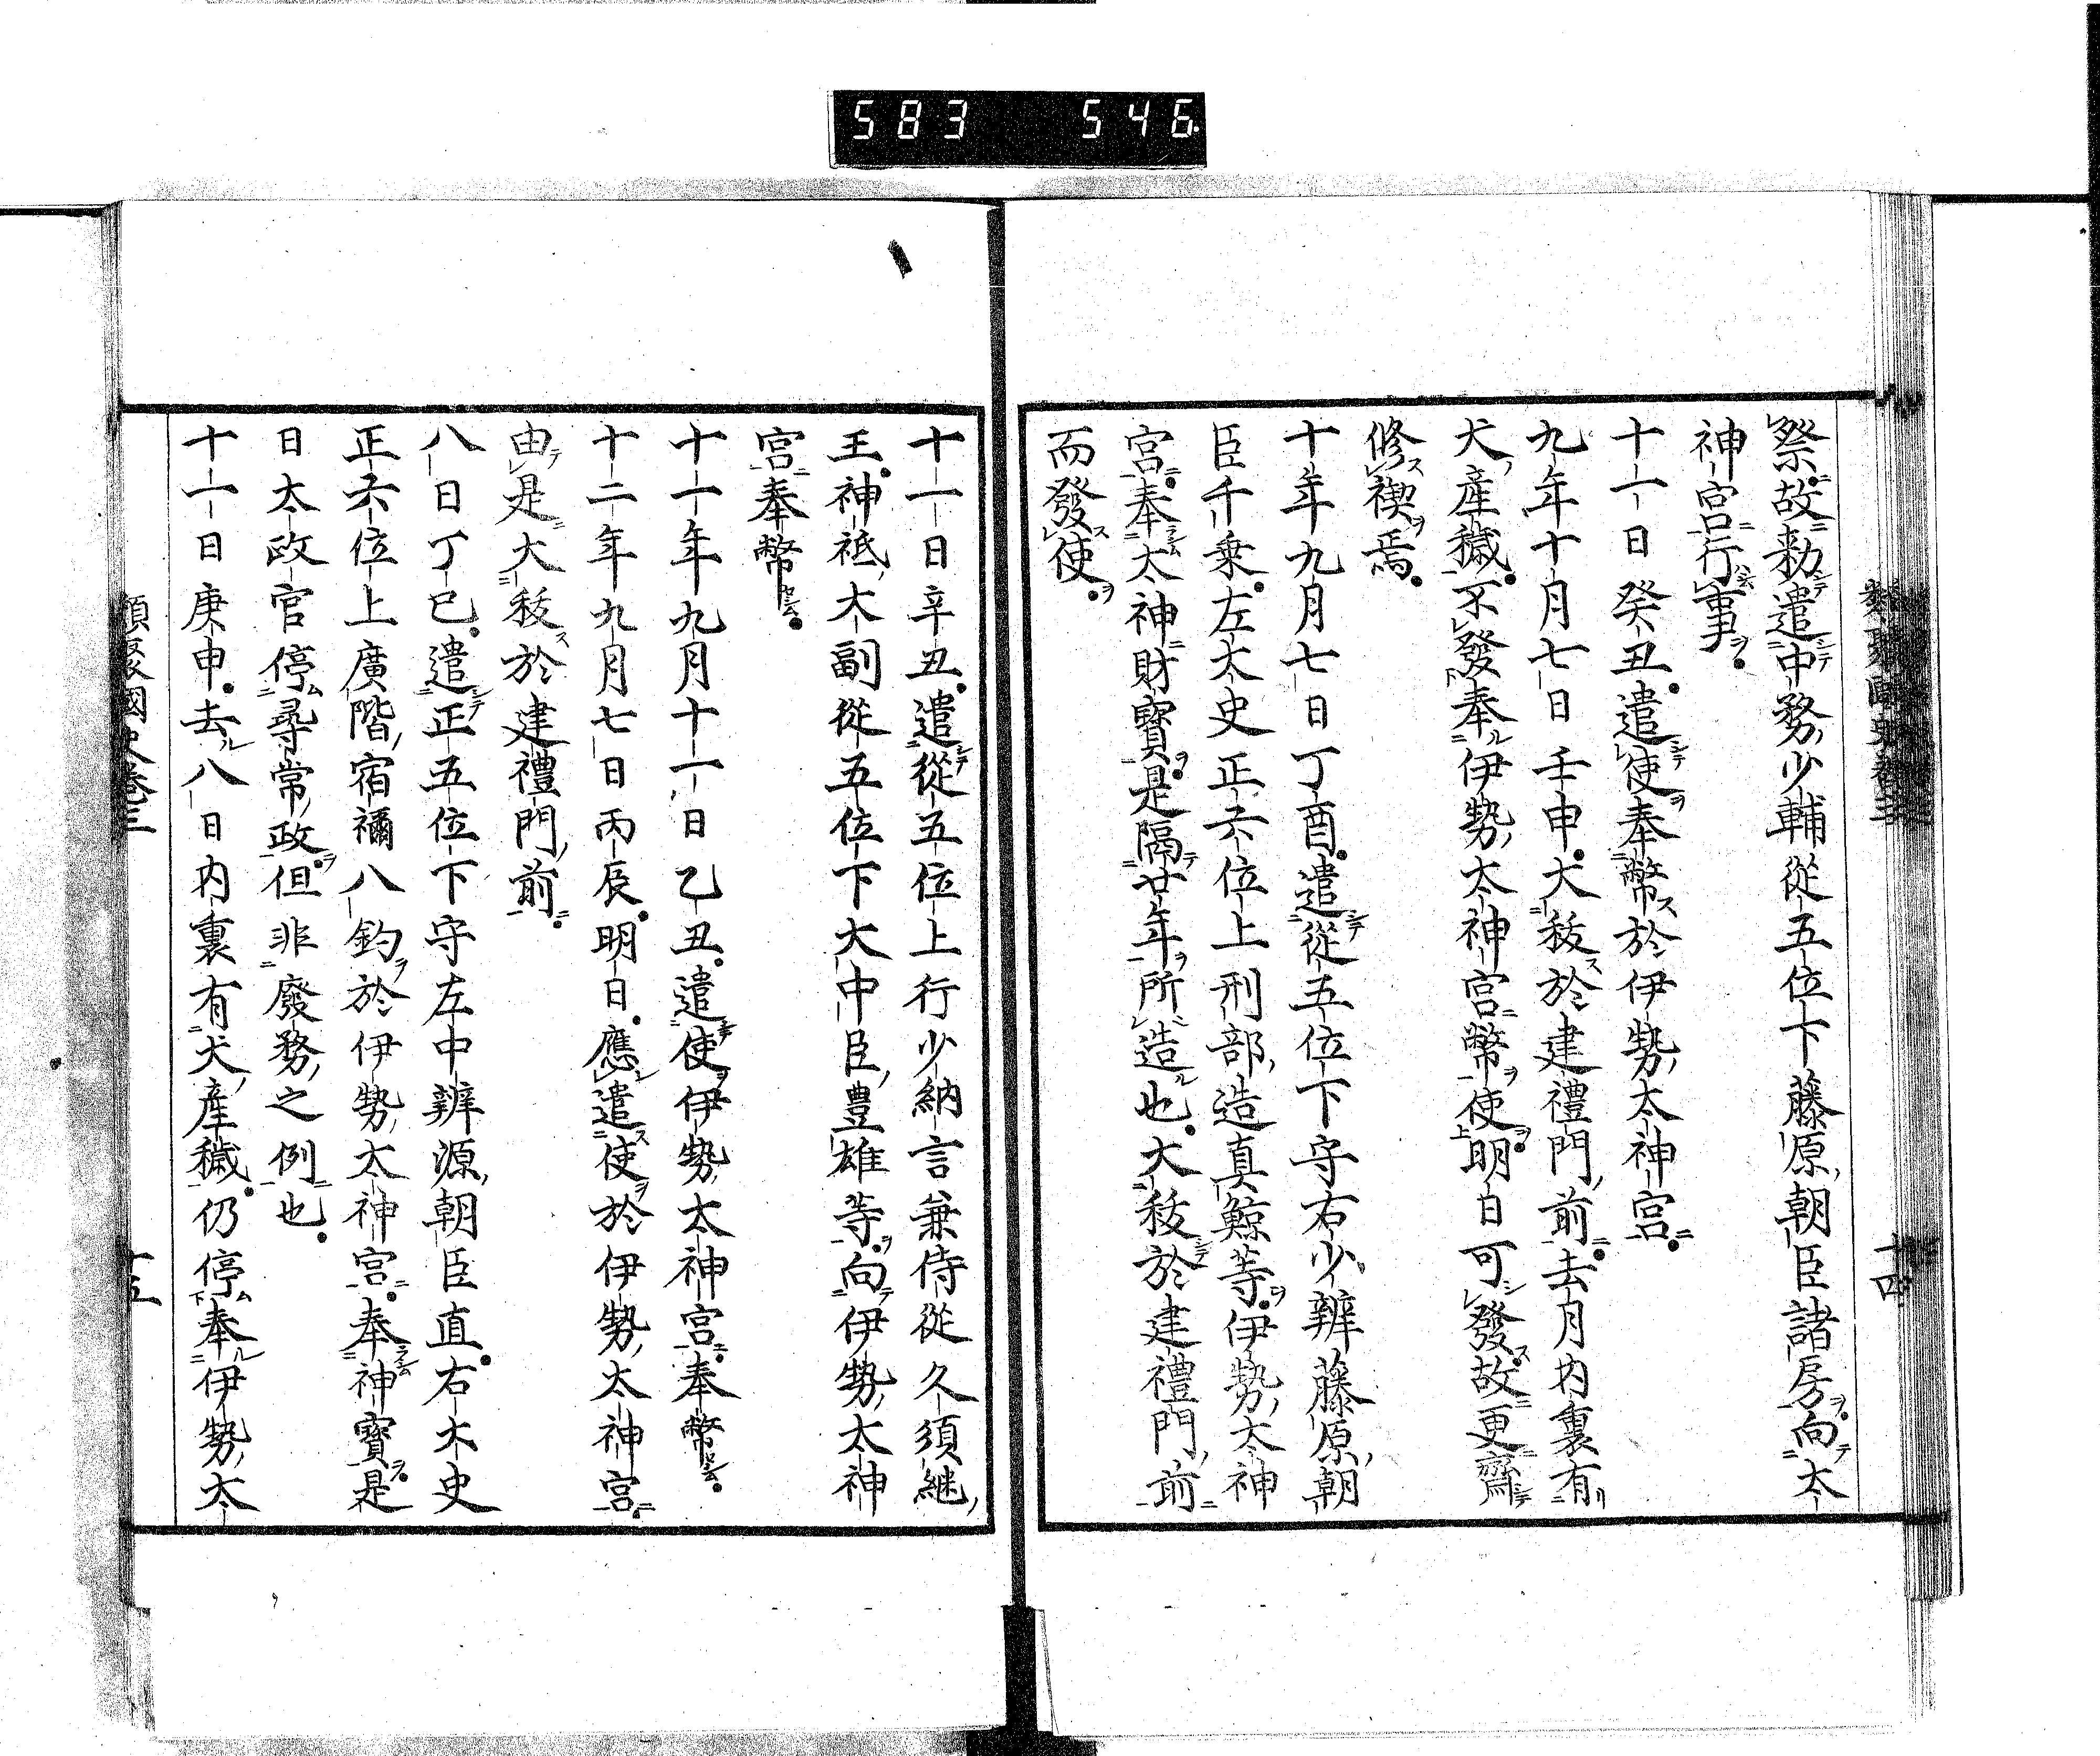 583 546
祭故勅遣中務少輔從五位下藤原朝臣諸房向太
神宮行事
十一日癸丑遣使奉幣於伊勢太神宮
九年十月七日壬申大秡於建禮門前去月内裏有
犬産穢不發奉伊勢太神宮幣使明日可發故更齋
修禊焉
十年九月七日丁酉遣從五位下守右少辨藤原朝
臣千乗左大史正六位上刑部造真鯨等伊勢太神
宮奉太神財寳是隔廿年所造也大秡於建禮門前
而發使
十四
十一日辛丑遣從五位上行少納言兼侍從久須継
王神祇大副從五位下大中臣豊雄等向伊勢太神
宮奉幣
十一年九月十一日乙丑遣使伊勢太神宮奉幣
十二年九月七日丙辰明日應遣使於伊勢太神宮
由是大秡於建禮門前
八日丁巳遣正五位下守左中辨源朝臣直右大史
正六位上廣階宿禰八釣於伊勢太神宮奉神寳是
日太政官停尋常政但非廢務之例也
十一日庚申去八日内裏有犬産穢仍停奉伊勢太
類聚國史卷三
十五